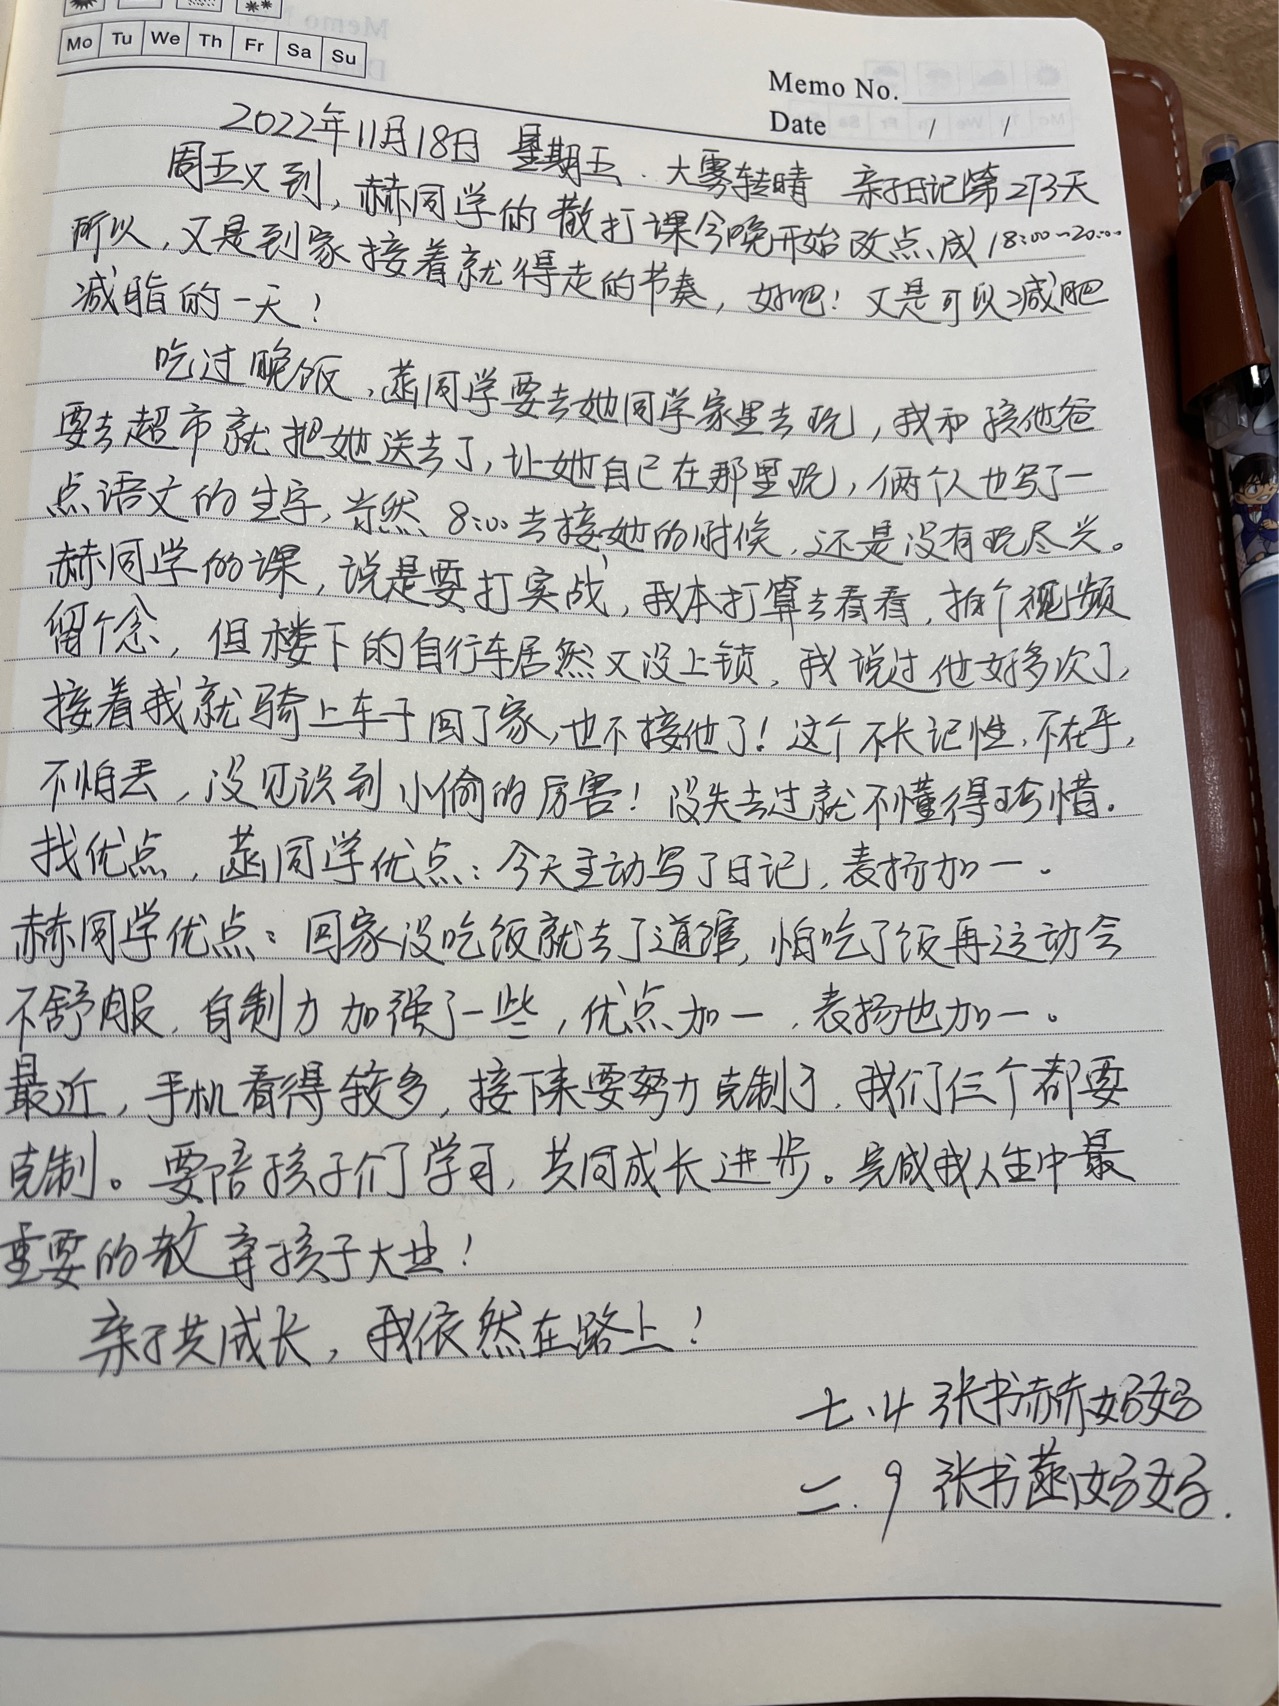 Mo Tu We Th Fr Sa Su
Memo No.
Date / /
2022年11月18日 星期五. 大雾转晴 亲子日记第273天
周五又到,赫同学的散打课今晚开始改点成18:00~20:00
所以,又是到家接着就得走的节奏,好吧!又是可以减肥
减脂的一天!
吃过晚饭,菡同学要去她同学家里去玩,我和孩他爸
要去超市就把她送去了,让她自己在那里玩,俩个人也写了一
点语文的生字,当然、8:00去接她的时候,还是没有玩尽兴。
赫同学的课,说是要打实战,我本打算去看看,拍个视频
留个念,但楼下的自行车居然又没上锁,我说过他好多次了,
接着我就骑上车子回了家,也不接他了!这个不长记性,不在乎,
不怕丢,没见识到小偷的厉害!没失去过就不懂得珍惜.
找优点,菡同学优点:今天主动写了日记,表扬加一.
赫同学优点:回家没吃饭就去了道馆,怕吃了饭再运动会
不舒服,自制力加强了一些,优点加一,表扬也加一。
最近,手机看得较多,接下来要努力克制了,我们仨个都要
克制。要陪孩子们学习,共同成长进步。完成我人生中最
重要的教育孩子大业!
亲子共成长,我依然在路上!
七.4 张书赫妈妈
二.9 张书菡妈妈.